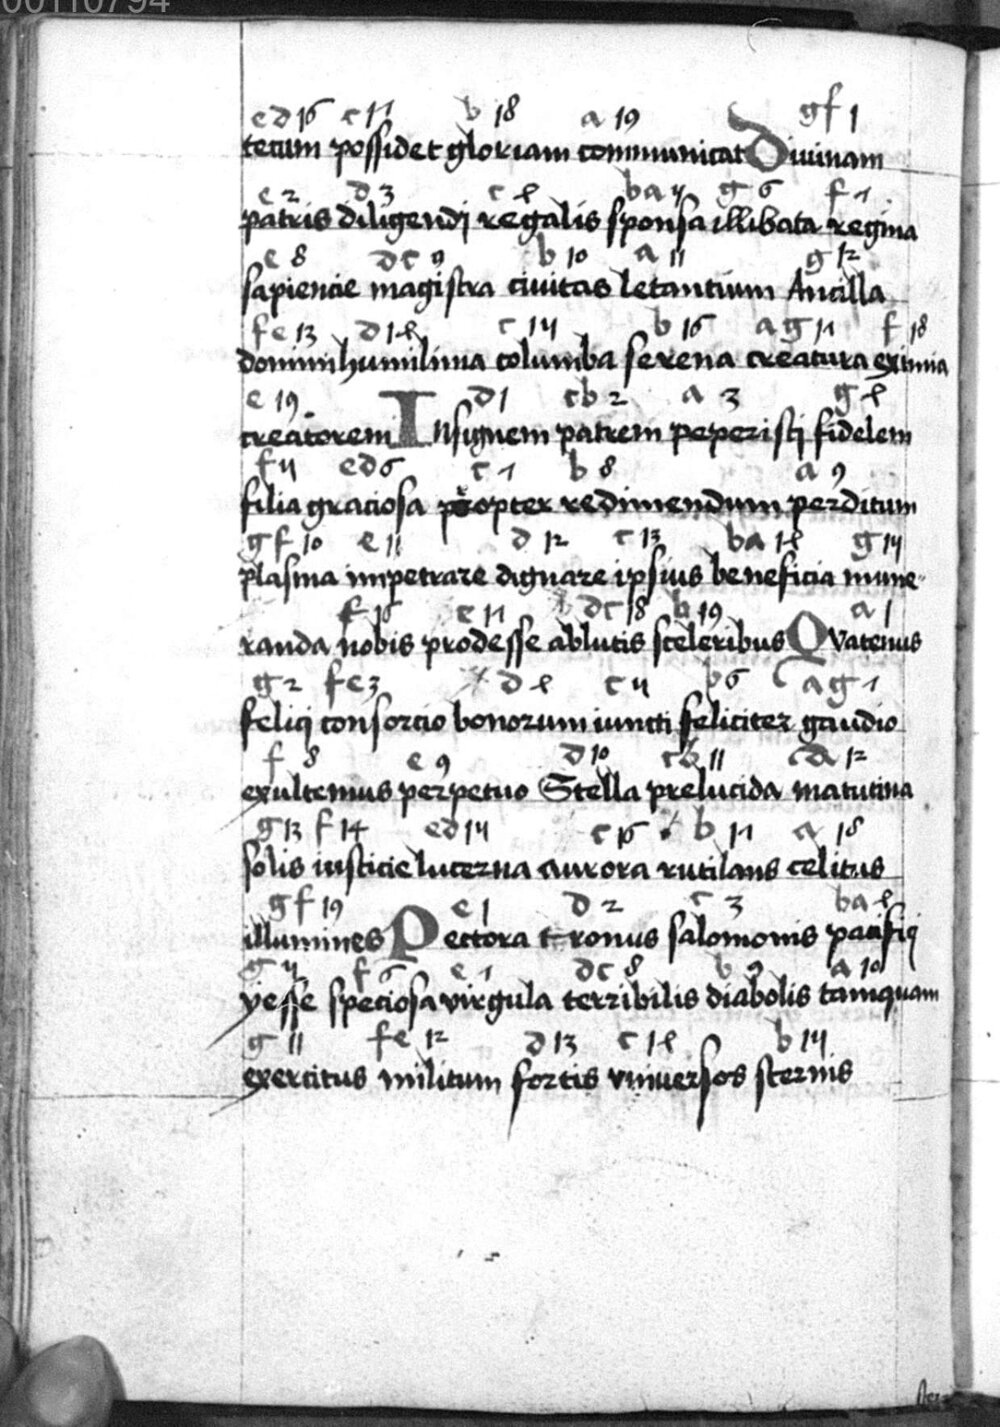 00110794
e d 16 c 17 b 18 a 19 g f 1
tecum possidet gloriam communicat Diuinam
e 2 d 3 c 4 b a 5 g 6 f 7
patris diligendj regalis sponsa illibata regina
e 8 d c 9 b 10 a 11 g 12
sapiencie magistra ciuitas letantium Ancilla
f e 13 d 14 c 15 b 16 a g 17 f 18
domini humilima columba serena creatura eximia
e 19 d 1 c b 2 a 3 g 4
creatorem Insignem patrem peperistj fidelem
f 5 e d 6 c 7 b 8 a 9
filia graciosa propter redimendum perditum
g f 10 e 11 d 12 c 13 b a 14 g 15
plasma impetrare dignare ipsius beneficia mune-
f 16 e 17 d c 18 b 19 a 1
randa nobis prodesse ablutis sceleribus Quatenus
g 2 f e 3 d 4 c 5 b 6 a g 7
felicj consorcio bonorum iuncti feliciter gaudio
f 8 e 9 d 10 c b 11 a 12
exultemus perpetuo Stella prelucida matutina
g 13 f 14 e d 15 c 16 b 17 a 18
solis iusticie lucerna aurora rutilans celitus
g f 19 e 1 d 2 c 3 b a 4
illumines Pectora tronus salomonis pacificj
g 5 f 6 e 7 d c 8 b 9 a 10
yesse speciosa virgula terribilis diabolis tamquam
g 11 f e 12 d 13 c 14 b 15
exercitus militum fortis vniuersos sternis